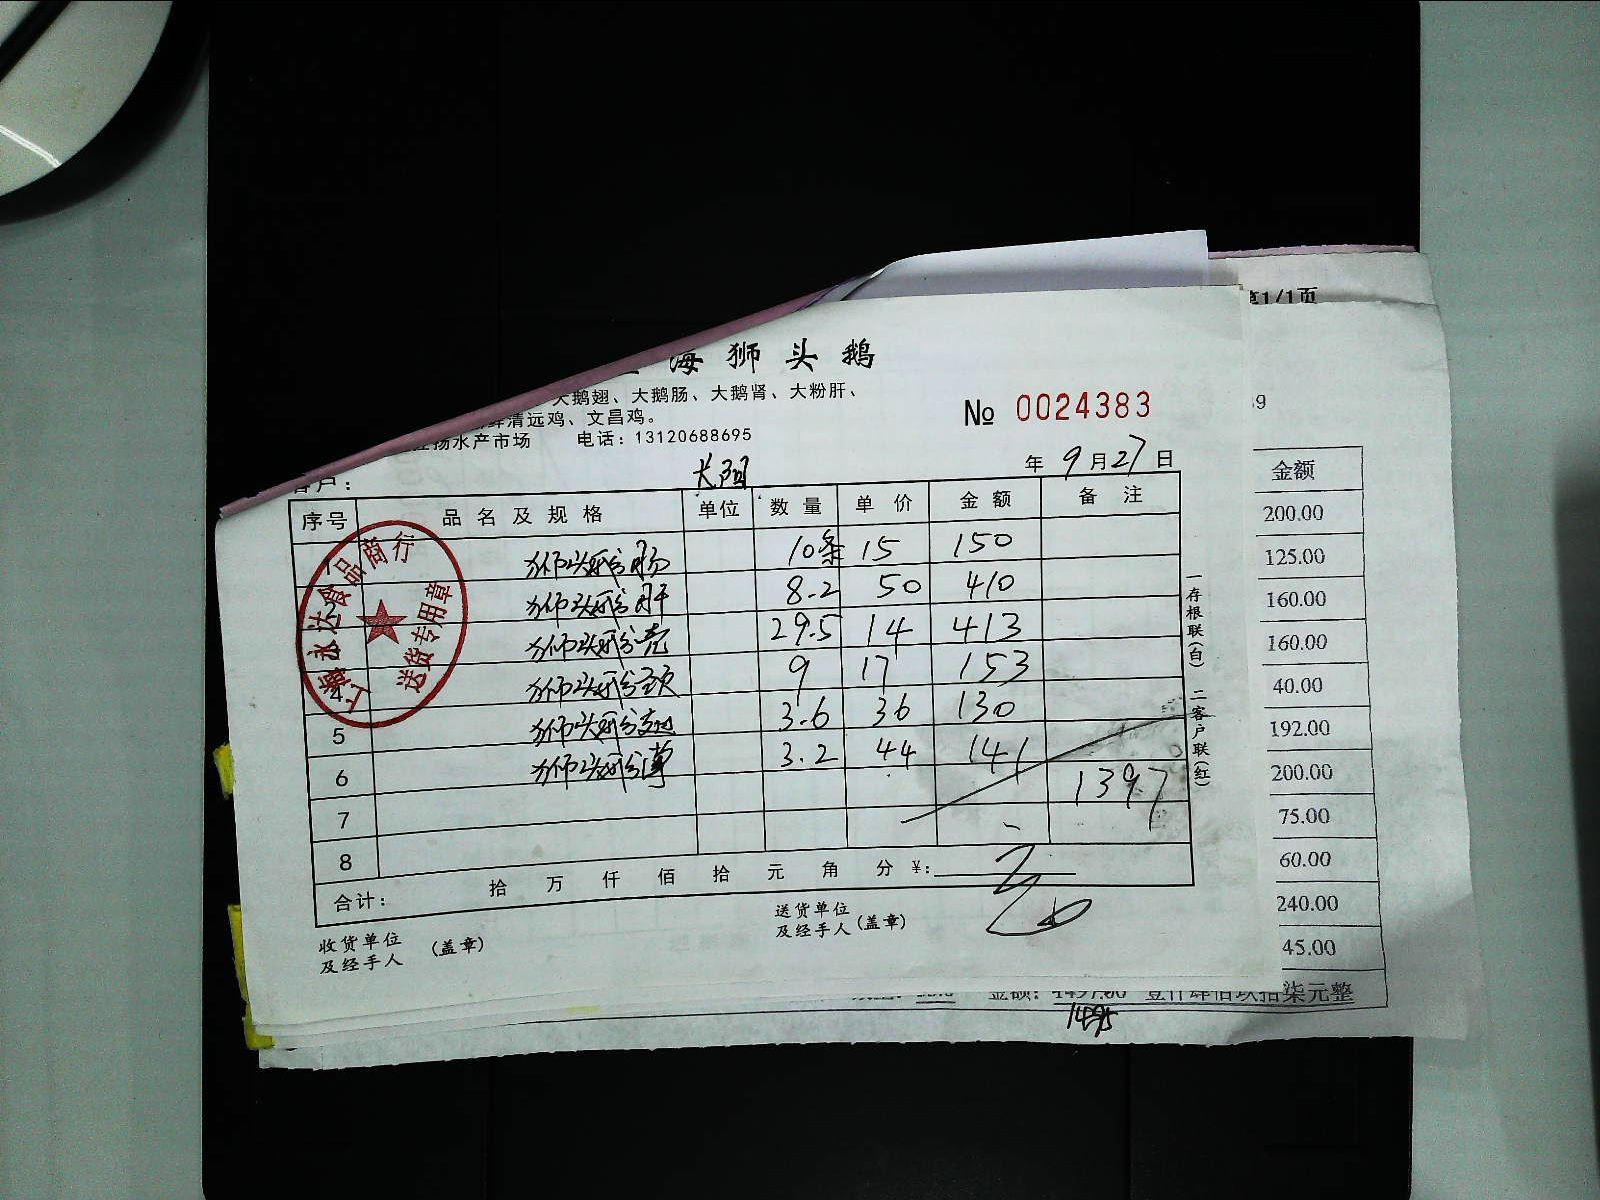 海狮头鹅
大鹅翅、大鹅肠、大鹅肾、大粉肝、
鲜清远鸡、文昌鸡。
No 0024383
杨水产市场 电话:13120688695
客户: 大阳 年 9 月 27 日
序号 品名及规格 单位 数量 单价 金额 备注
1 狮头鹅肠 10条 15 150
2 狮头鹅肝 8.2 50 410
3 狮头鹅壳 29.5 14 413
4 狮头鹅颈 9 17 153
5 狮头鹅翅 3.6 36 130
6 狮头鹅 3.2 44 141
7 1397
8
合计: 拾 万 仟 佰 拾 元 角 分 ¥:
收货单位
及经手人 (盖章)
送货单位
及经手人 (盖章)
一存根联(白) 二客户联(红)
上海永达食品商行
送货专用章
第1/1页
金额
200.00
125.00
160.00
160.00
40.00
192.00
200.00
75.00
60.00
240.00
45.00
金额: 1497.00 壹仟肆佰玖拾柒元整
1495